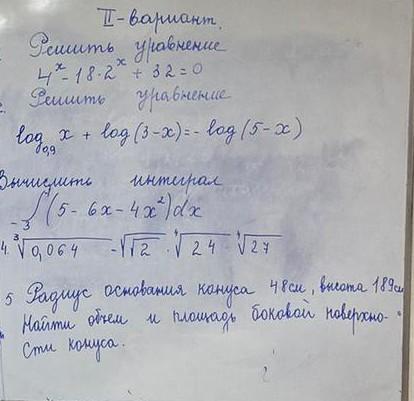 II-вариант.
Решить уравнение
4^x - 18·2^x + 32 = 0
Решить уравнение
log_0,9 x + log (3-x) = - log (5-x)
Вычислить интеграл
∫_-3 (5 - 6x - 4x²) dx
4. ³√0,064 - √√2 · ⁴√24 · ⁴√27
5 Радиус основания конуса 48см, высота 189см
Найти объем и площадь боковой поверхно-
сти конуса.